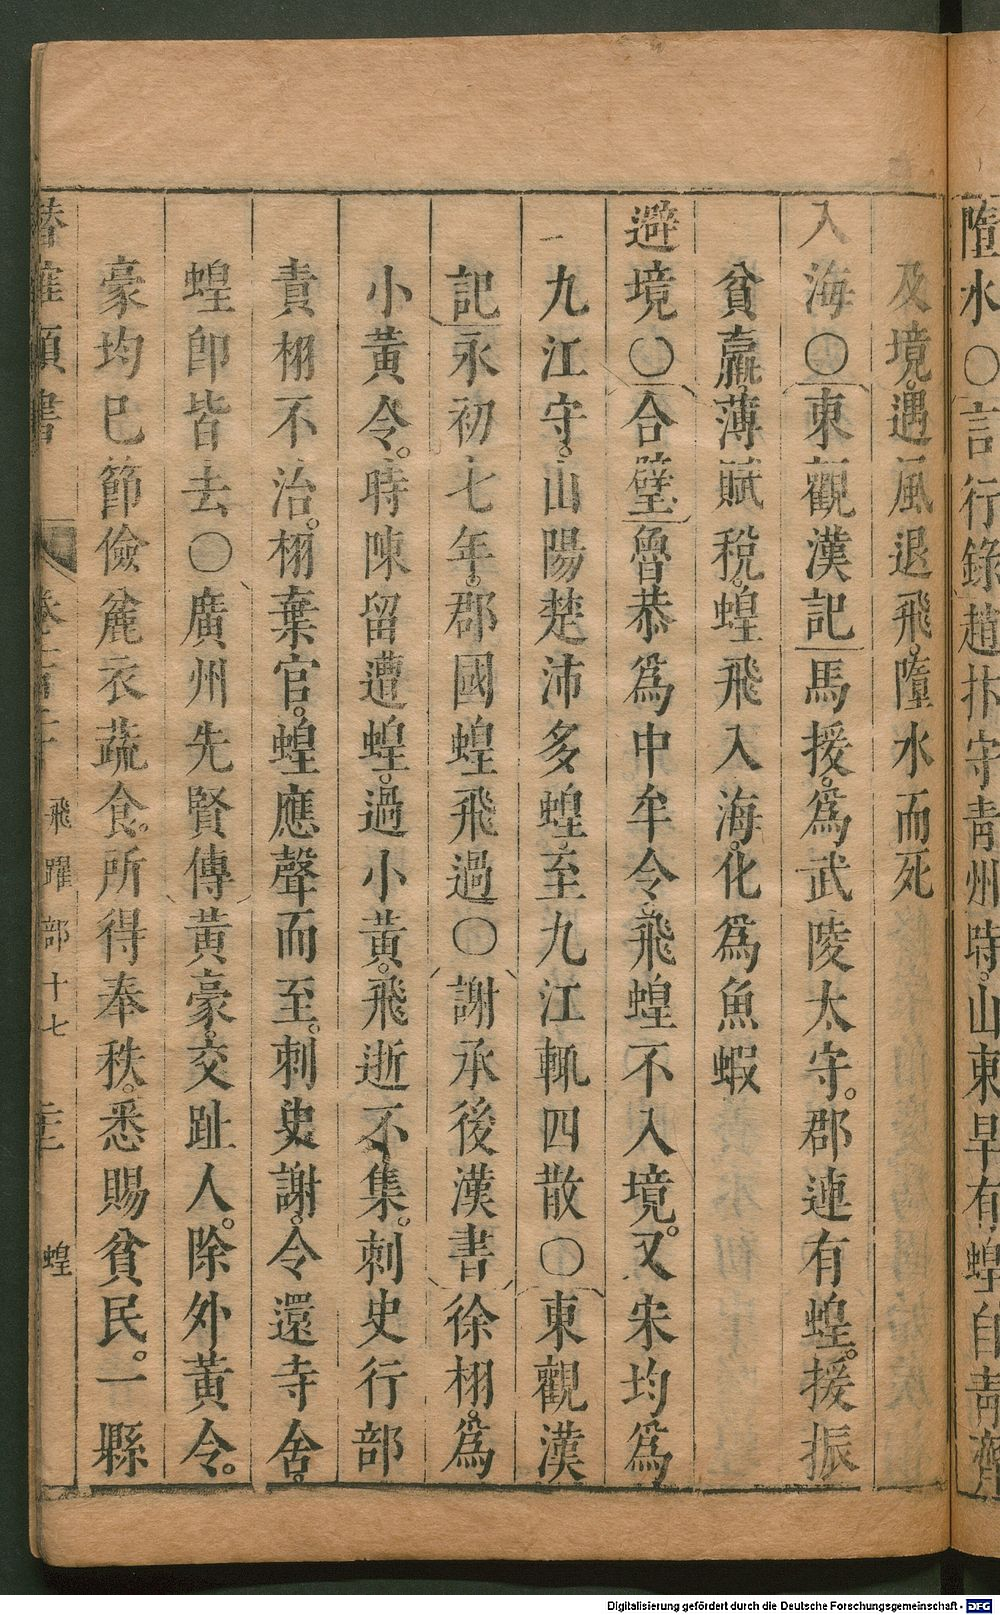 隋水〇言行錄趙抃守青州時。山東旱有蝗自青齊
及境。遇風退飛。墮水而死
入海〇東觀漢記馬援。為武陵太守。郡連有蝗。援振
貧羸。薄賦稅。蝗飛入海。化為魚蝦
避境〇合璧魯恭為中牟令飛蝗不入境。又宋均為
一九江守。山陽楚沛多蝗至九江輒四散〇東觀漢
記永初七年。郡國蝗飛過〇謝承後漢書徐栩。為
小黃令。時陳留遭蝗。過小黃。飛逝不集。刺史行部
責栩不治。栩棄官。蝗應聲而至。刺史謝。令還寺舍。
蝗即皆去〇廣州先賢傳黃豪。交趾人。除外黃令。
豪均巳節儉麄衣蔬食。所得奉秩。悉賜貧民。一縣
類書 飛躍部十七 蝗
Digitalisierung gefördert durch die Deutsche Forschungsgemeinschaft - DFG